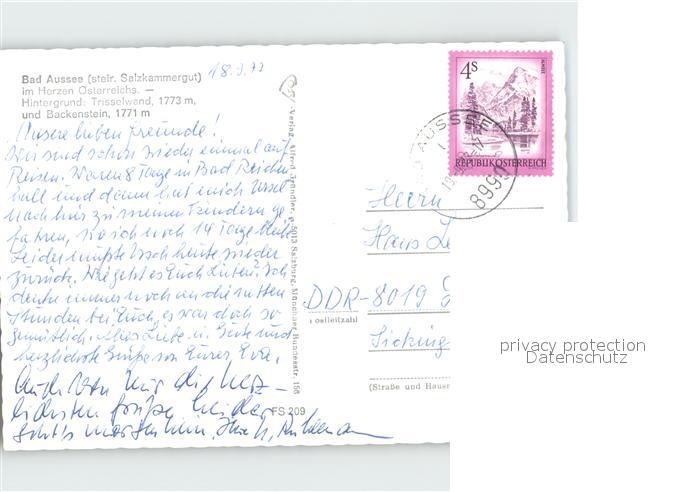 Bad Aussee (steir. Salzkammergut)
im Herzen Österreichs. —
Hintergrund: Trisselwand, 1773 m,
und Backenstein, 1771 m
18.9.
Unsere lieben Freunde!
Wir sind schon wieder einmal auf
Reisen. Waren 8 Tage in Bad Reichen
hall und dann hat mich
nach hier zu meinen Kindern ge
fahren, wo ich noch 14 Tage bleibe
Leider mußte heute wieder
zurück. Wie geht es Euch Lieben? Ich
denke immer noch an die netten
Stunden bei Euch, es war doch so
gemütlich. Alles Liebe u. Gute und
herzlichste Grüße von Eurer Eva.
Auch von mir die herz-
lichsten Grüße, leider
geht's morgen heim,
Verlag Alfred Trändler, 5013 Salzburg, Münchner Bundesstr. 156
FS 209
4 S
REPUBLIK ÖSTERREICH
AUSSEE
8990
Herrn
Hans
DDR-8019
Postleitzahl
(Straße und Hausn
privacy protection
Datenschutz